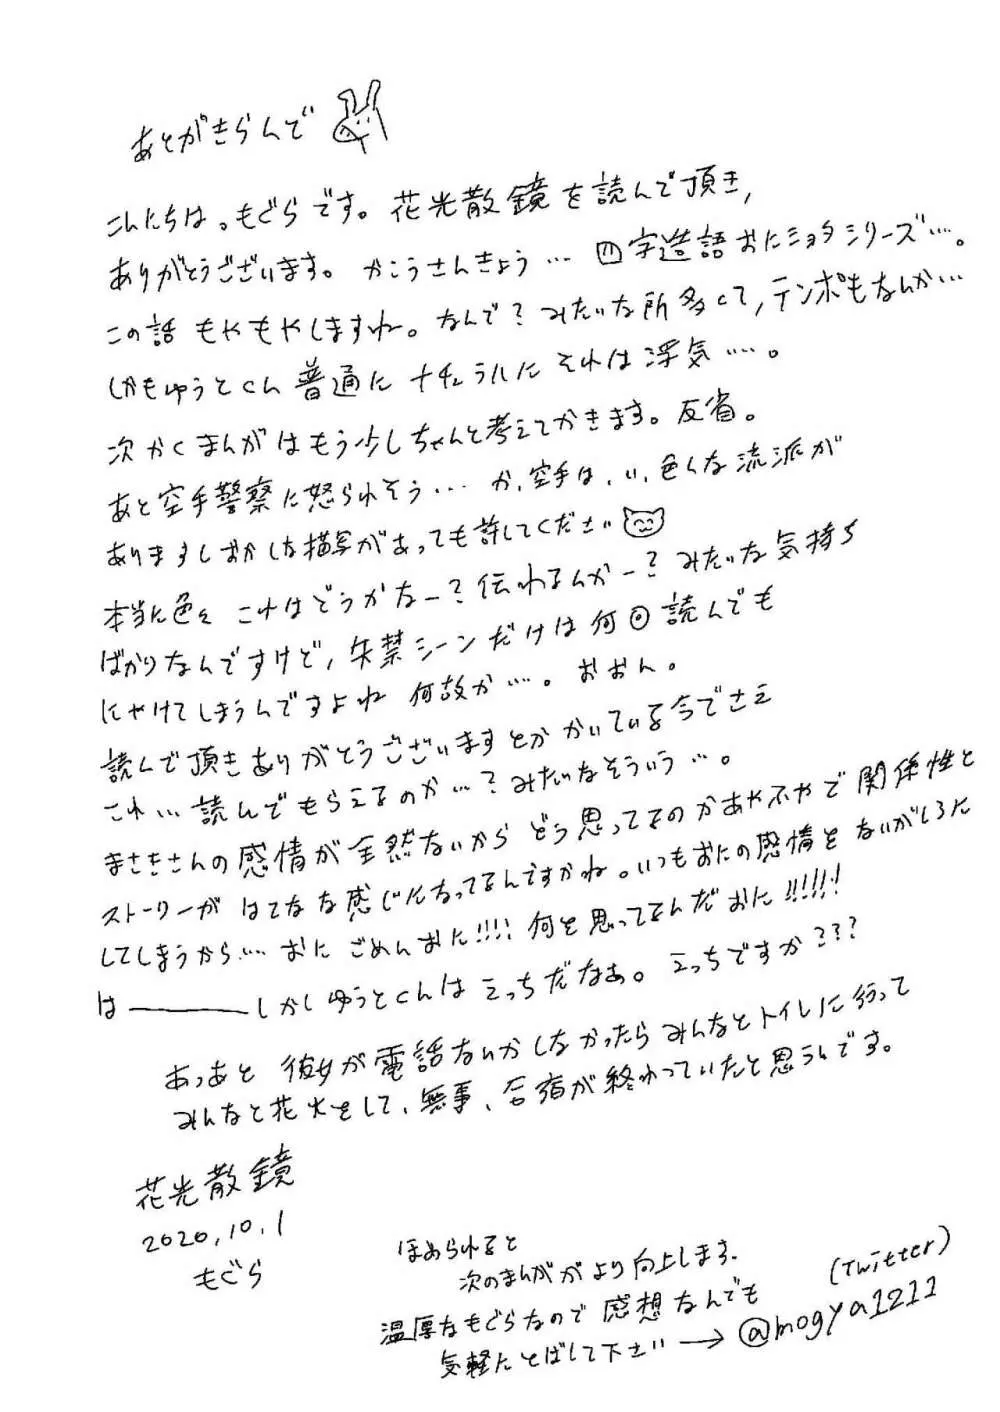 あとがきらんで
こんにちは。もぐらです。花光散鏡を読んで頂き,
ありがとうございます。かこうさんきょう… 四字造語おにショタシリーズ…。
この話 もやもやしますね。なんで？みたいな所多くて,テンポもなんか…
しかもゆうとくん 普通に ナチュラルに それは浮気…。
次かくまんがはもう少しちゃんと考えてかきます。反省。
あと空手警察に怒られそう… か,空手は,い,色々な流派が
ありますしおかしな描写があっても許してください
本当に色々 これはどうかなー？伝わるんかー？みたいな気持ち
ばかりなんですけど,失禁シーンだけは何回読んでも
にやけてしまうんですよね 何故か…。おおん。
読んで頂きありがとうございますとか かいている今でさえ
これ… 読んでもらえるのか…？みたいなそういう…。
まさきさんの感情が全然ないから どう思ってるのかあやふやで関係性と
ストーリーが はてなな感じになってるんですかね。いつもおにの感情を ないがしろに
してしまうから… おに ごめんおに!!!! 何を思ってるんだおに!!!!!
は――しかしゆうとくんはえっちだなぁ。えっちですか???
あっあと 彼女が電話ないかしなかったら みんなとトイレに行って
みんなと花火をして、無事、合宿が終わっていたと思うんです。
花光散鏡
2020,10.1
もぐら
ほめられると
次のまんががより向上します.
温厚なもぐらなので 感想なんでも
気軽にとばして下さい → @mogya1211
(Twitter)